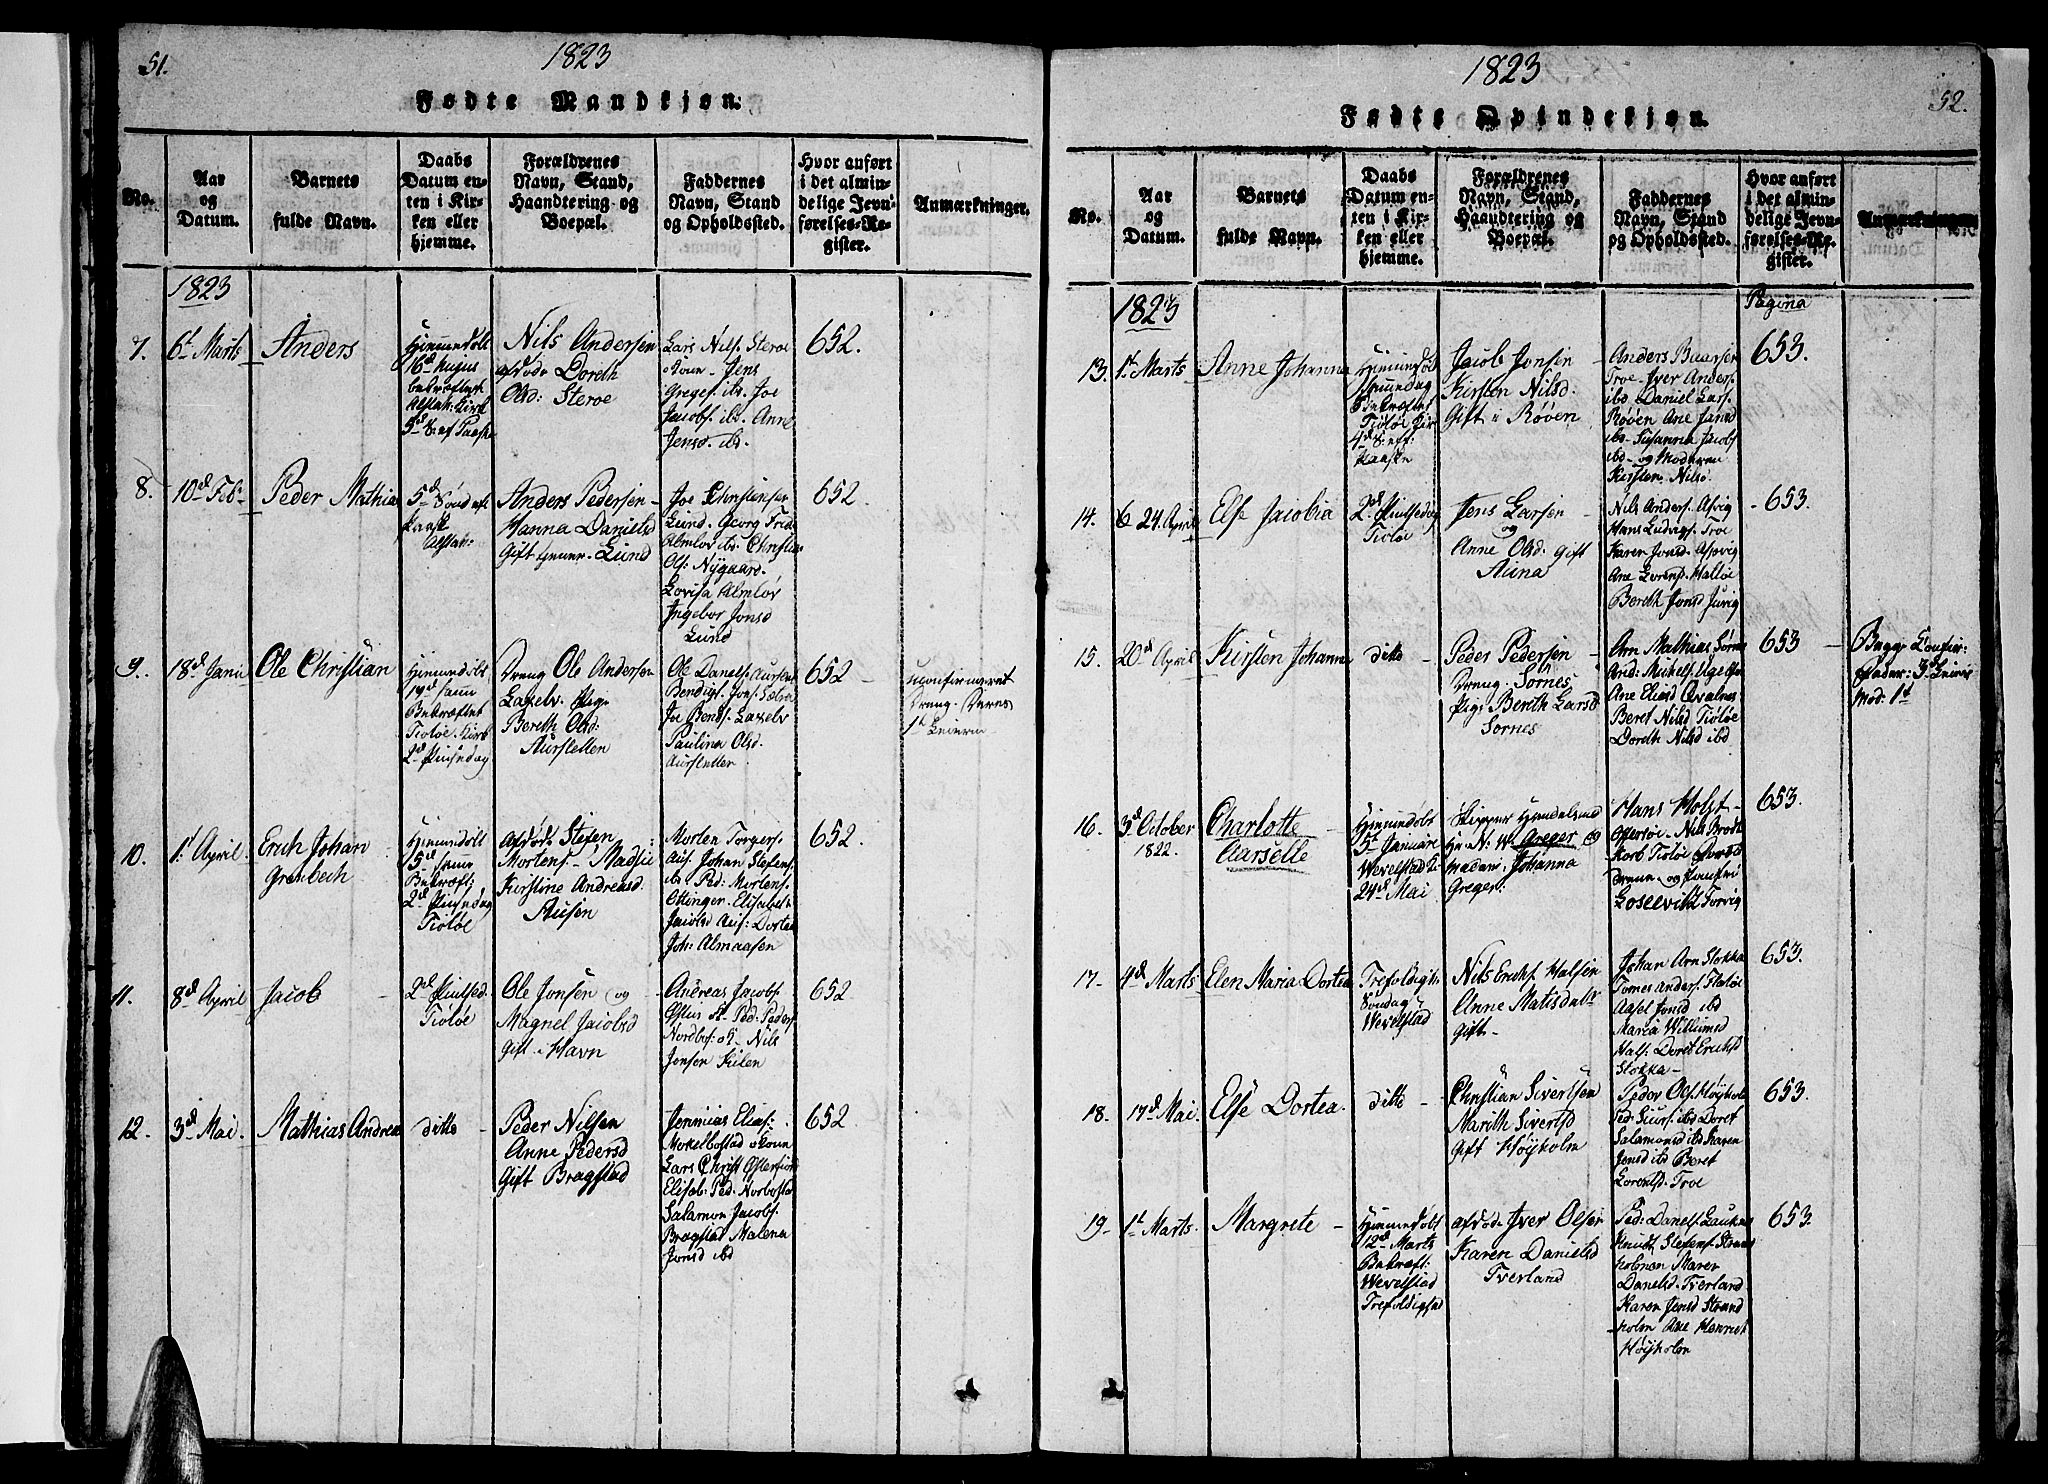 51.
1823
Fødte Mandkjøn.
No.
Aar
og
Datum.
Barnets
fulde Navn.
Daabs
Datum en-
ten i Kir-
ken eller
hjemme.
Forældrenes
Navn, Stand,
Haandtering og
Boepæl.
Faddernes
Navn, Stand
og Opholdssted.
Hvor anført
i det almin-
delige Jevn-
førelses-Re-
gister.
Anmærkninger.
1823
7.
6t Marts
Anders
Hjemmedøbt
16d hujus
bekræftet
Alstah: Kirk
5d S: ef Paaske
Nils Andersen
afdøde Doreth
Olsd: Steroe
Lars Nilss. Steroe
Jens
Gregers. ibd. Joe
Jacobs. ibd. Anne
Jensd. ibd.
652.
8.
10d Feb
Peder Mathia
5d Sønd eft
Paaske
Alstah:
Anders Pedersen
Hanna Danielsd
Gift Lund
Joe Christensen
Lund. Georg Frid
Almlov ibd. Christian
Ols: Nygaard.
Lovisa Almlöv
Ingebor Jonsd
Lund
652
9.
18d Janu
Ole Christian
Hjemmedøbt
19d samme
Bekræftet
Tiøtøe Kirk
2d Pintsedag
Dreng Ole Andersen
Laxelv Pige
Bereth Olsd:
Aursletten
Ole Danels. Aurslett
Bendigt Jons.
Joe Bends. Laxelv
Paulina Olsd.
Aursletten
652
uconfirmeret
Dreng. Deres
1t Leierm
10.
1t April
Erich Johan
Grønbech
Hjemmedøbt
5d samme
Bekræft:
2d Pintsedag
Tiøtøe
afdøde Steffen
Mortens Madsie
Kirstine Andreasd.
Ausen
Morten Torgers.
Aus. Johan Stefens.
ibd. Ped: Mortens.
Ottinger. Elisabet
Jacobsd Aus: Dortea
Joh: Almaasen
652.
11.
8d April
Jacob
2d Pintsed.
Tiøtøe
Ole Jonsen og
Magnel Jacobsd
Gift i Havn
Andreas Jacobs.
Ped: Peders.
Nils
Jonsen Kilen
652
12.
3d Mai
Mathias Andrea
ditto
Peder Nilsen
Anne Pedersd
Gift Bragstad
Jeremias Elias:
Mekelbostad
Lars Christ
Elisab: Ped: Norbosta
Salamon Jacobs.
Bragstad Malena
Jonsd ibd
652
1823
52.
Fødte Qvindekjøn.
No.
Aar
og
Datum.
Barnets
fulde Navn.
Daabs
Datum en-
ten i Kir-
ken eller
hjemme.
Forældrenes
Navn, Stand,
Haandtering og
Boepæl.
Faddernes
Navn, Stand
og Opholdssted.
Hvor anført
i det almin-
delige Jevn-
førelses-Re-
gister.
Anmærkninger
1823
Pagina
13.
1t Marts
Anne Johanna
Hjemmedøbt
Bekræftet
Tiøtøe Kir
4d S: eft:
Paaske
Jacob Jonsen
Kirsten Nilsd.
Gift i Røöen
Anders Baarsen
Troe. Iver Anders.
ibd Daniel Lars.
Røöen Ane Jansd
ibd. Susanna Jacobs
ibd og Moderen
Kirsten Nilsd.
653.
14.
24. April
Else Jacobia
2d Pintsedag
Tiøtøe
Jens Larsen
og
Anne Olsd. gift
Auna
Nils Anders. Alsvig
Hans Ludvigs. Troe
Karen Jonsd. Alsvig
Ane Lorensd. Hattøe
Bereth Jonsd
653.
15.
20d April
Kirsten Johanna
ditto
Peder Pedersen
Dreng. Sornes
Pige Bereth Larsd
Sornes
Arn Mathias Sørne
Ane Eliasd Qvalnes
Beret Nilsd Tiøtøe
Doreth Nilsd ibd
653
Begge Confir:
Fader: 3d Leierm
Mod: 1t
16.
3d October
1822.
Charlotte
Aarselle
Hjemmedøbt
5t Januari
Wevelstad K
24d Mai
Skipper
Hr: N: W. Greger og
madam: Johanna
Greger:
Hans Holst
Offersøe. Nils Brodt
Korb Tiøtøe
og Jomfru
Coselvitz Forvig
653.
17.
4d Marts
Elen Maria Dortea
Trefoldigh:
Søndag
Wevelstad
Nils Erichs. Halsen
Anne Matisdatr
Gift
Johan Arn Stokka
Tomes Anders. Flatøe
Axsel Jonsd ibd
Maria Willumsd
Hals: Doret Erichsd
Stokka
653.
18.
17d Mai
Else Dortea.
ditto
Christian Sivertsen
Marith Sivertsd
Gift Høyholm
Pedor Ols. Høyholm
Ped: Siurs. ibd Doret
Salamonsd ibd Karen
Jonsd ibd Beret
Lorentsd. Troe
653.
19
1t Marts.
Margrete
Hjemmedøbt
12d Marts
Bekræft:
Wevelstad
Trefoldigtsd
afdøde Iver Olsen
Karen Danielsd
Tverland
Ped: Danels.
Knutt Stefens. Strand
holmen Maren
Danelsd. Tverland
Karen Jensd Strand
holm Ane Henriet
Høyholm
653.